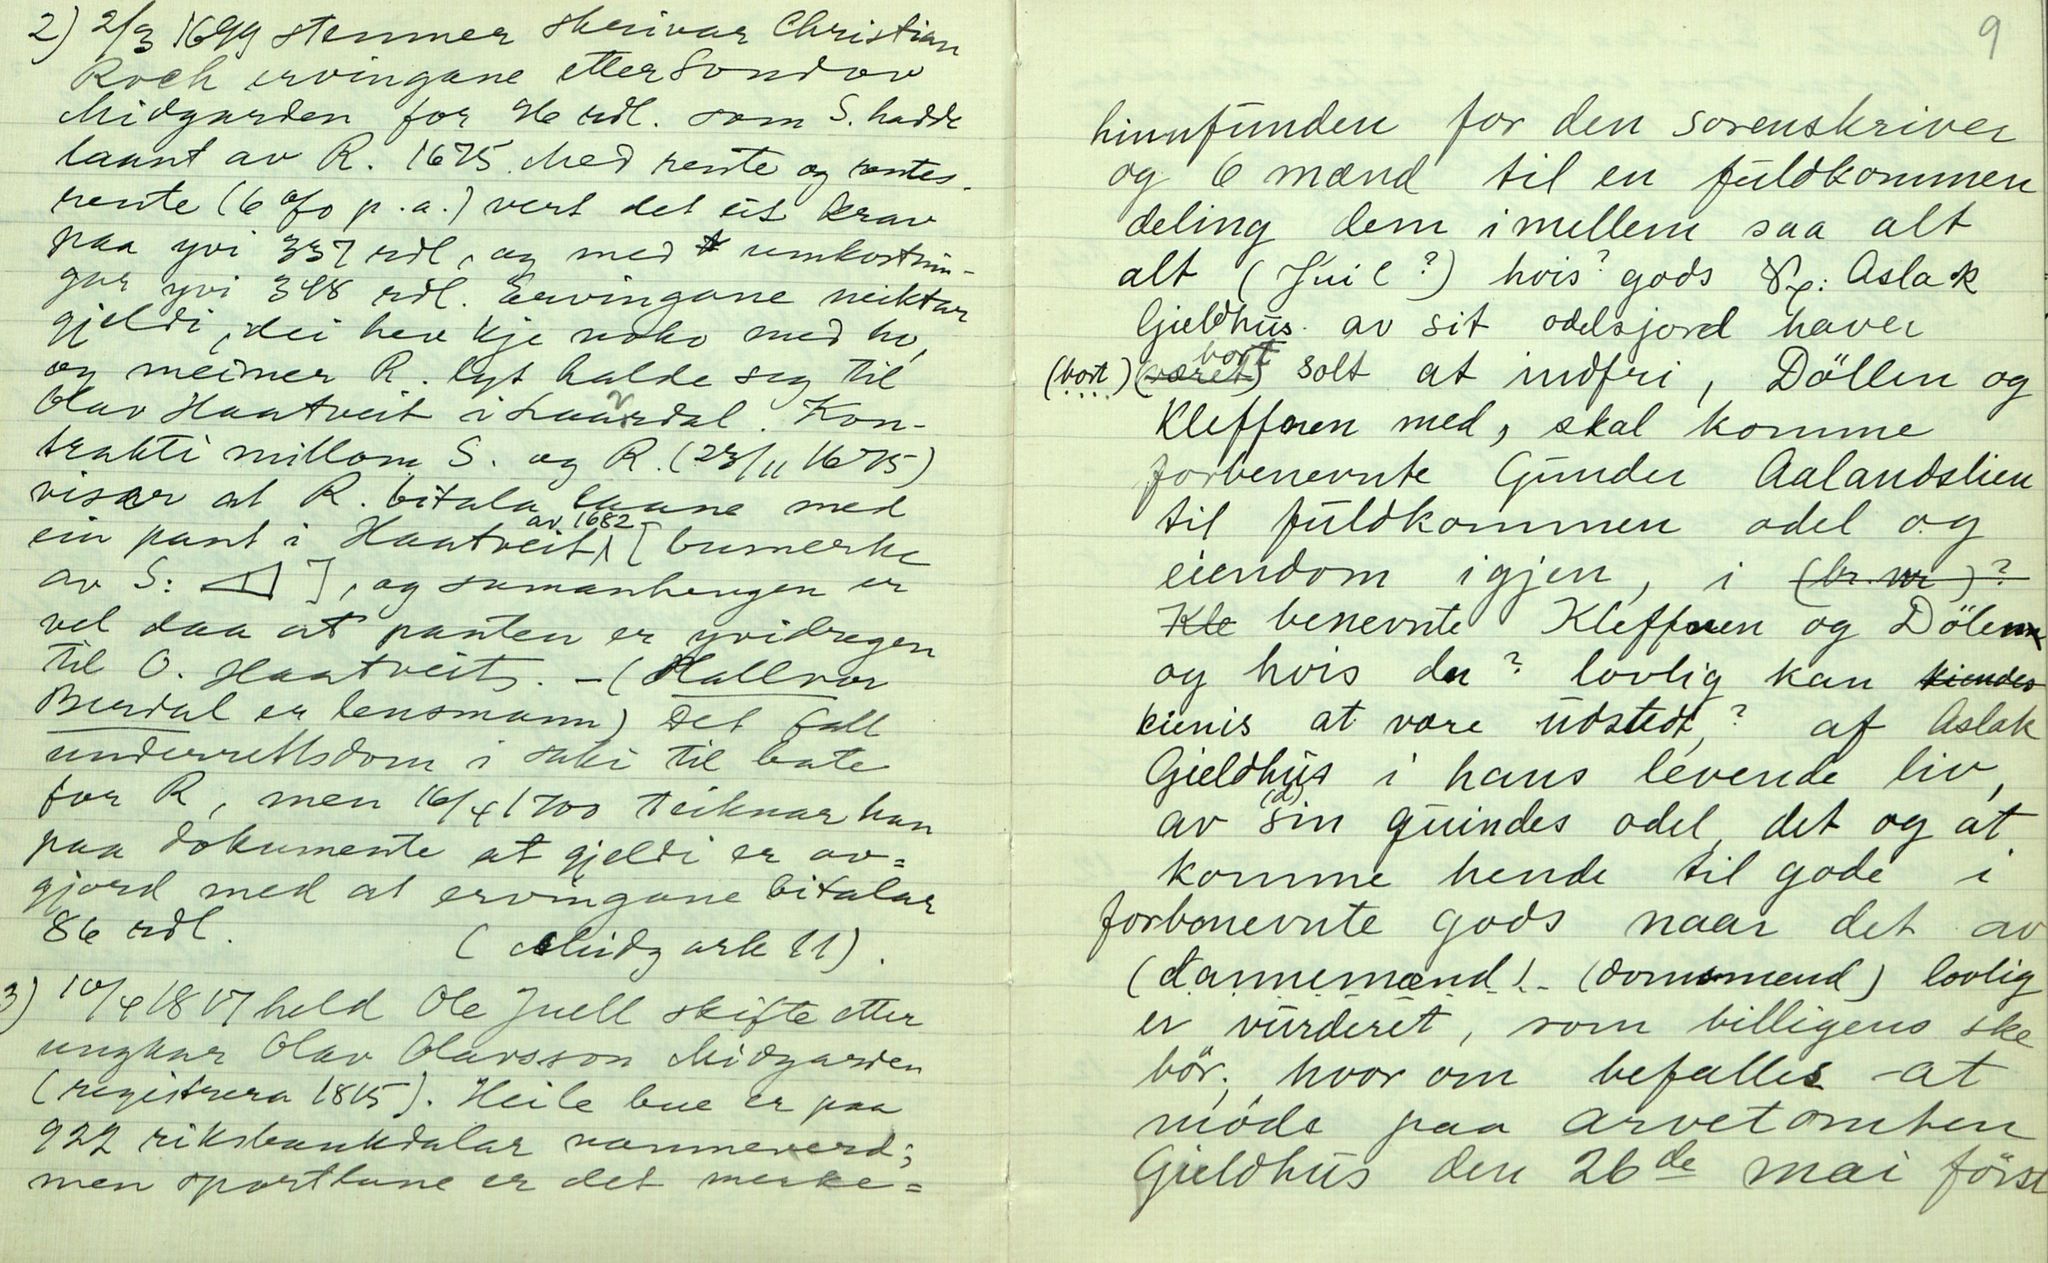 2) 2/3 1699 stemner skrivar Christian
Roch ervingane etter Sondov
Midgarden for 96 rdl. som S. hadde
laant av R. 1675. Med rente og rentes-
rente (6 % p.a.) vert det eit krav
paa yvi 337 rdl, og med umkostnin-
gar yvi 348 rdl. Ervingane neiktar
gjeldi, dei hev kje noko med ho,
og meiner R. lyt halde seg til
Olav Haatveit i Laardal. Kon-
trakti millom S. og R. (23/11 1675)
visar at R. bitala laane med
ein pant i Haatveit, av 1682 [bumerke
av S: ], og samanhengen er
vel daa at panten er yvidregen
til O. Haatveit. – (Hallvor
Berdal er lensmann) Det fall
underrettsdom i saki til bate
for R, men 16/4 1700 teiknar han
paa dokumente at gjeldi er av=
gjord med at ervingane bitalar
86 rdl.
(Midg ark 11).
3) 10/4 1817 held Ole Juell skifte etter
ungkar Olav Olavsson Midgarden
(registrera 1815). Heile bue er paa
922 riksbankdalar namneverd;
men sportlane er det merke=
9
hinnfunden for den sorenskriver
og 6 mænd til en fuldkommen
deling dem imellem saa alt
alt (Juil?) hvis? gods Aslak
Gieldhus av sit odelsjord haver
(bort) (været) bort solt at indfri, Döllen og
Kleffnen med, skal komme
forbenevnte Gunder Aalandslien
til fuldkommen odel og
eiendom igjen, i (br. nr)?
Kle benevnte Kleffnen og Dölenn
og hvis der? lovlig kan kiendes
kienis at være udstedt,? af Aslak
Gieldhus i hans levende liv,
av sin (d) quindes odel, det og at
komme hende til gode i
forbenevnte gods naar det av
(dannemænd! (domsmend) lovlig
er vurderet, som billigens ske
bör, hvor om befalles at
möde paa arvetomten
Gieldhus den 26de mai först